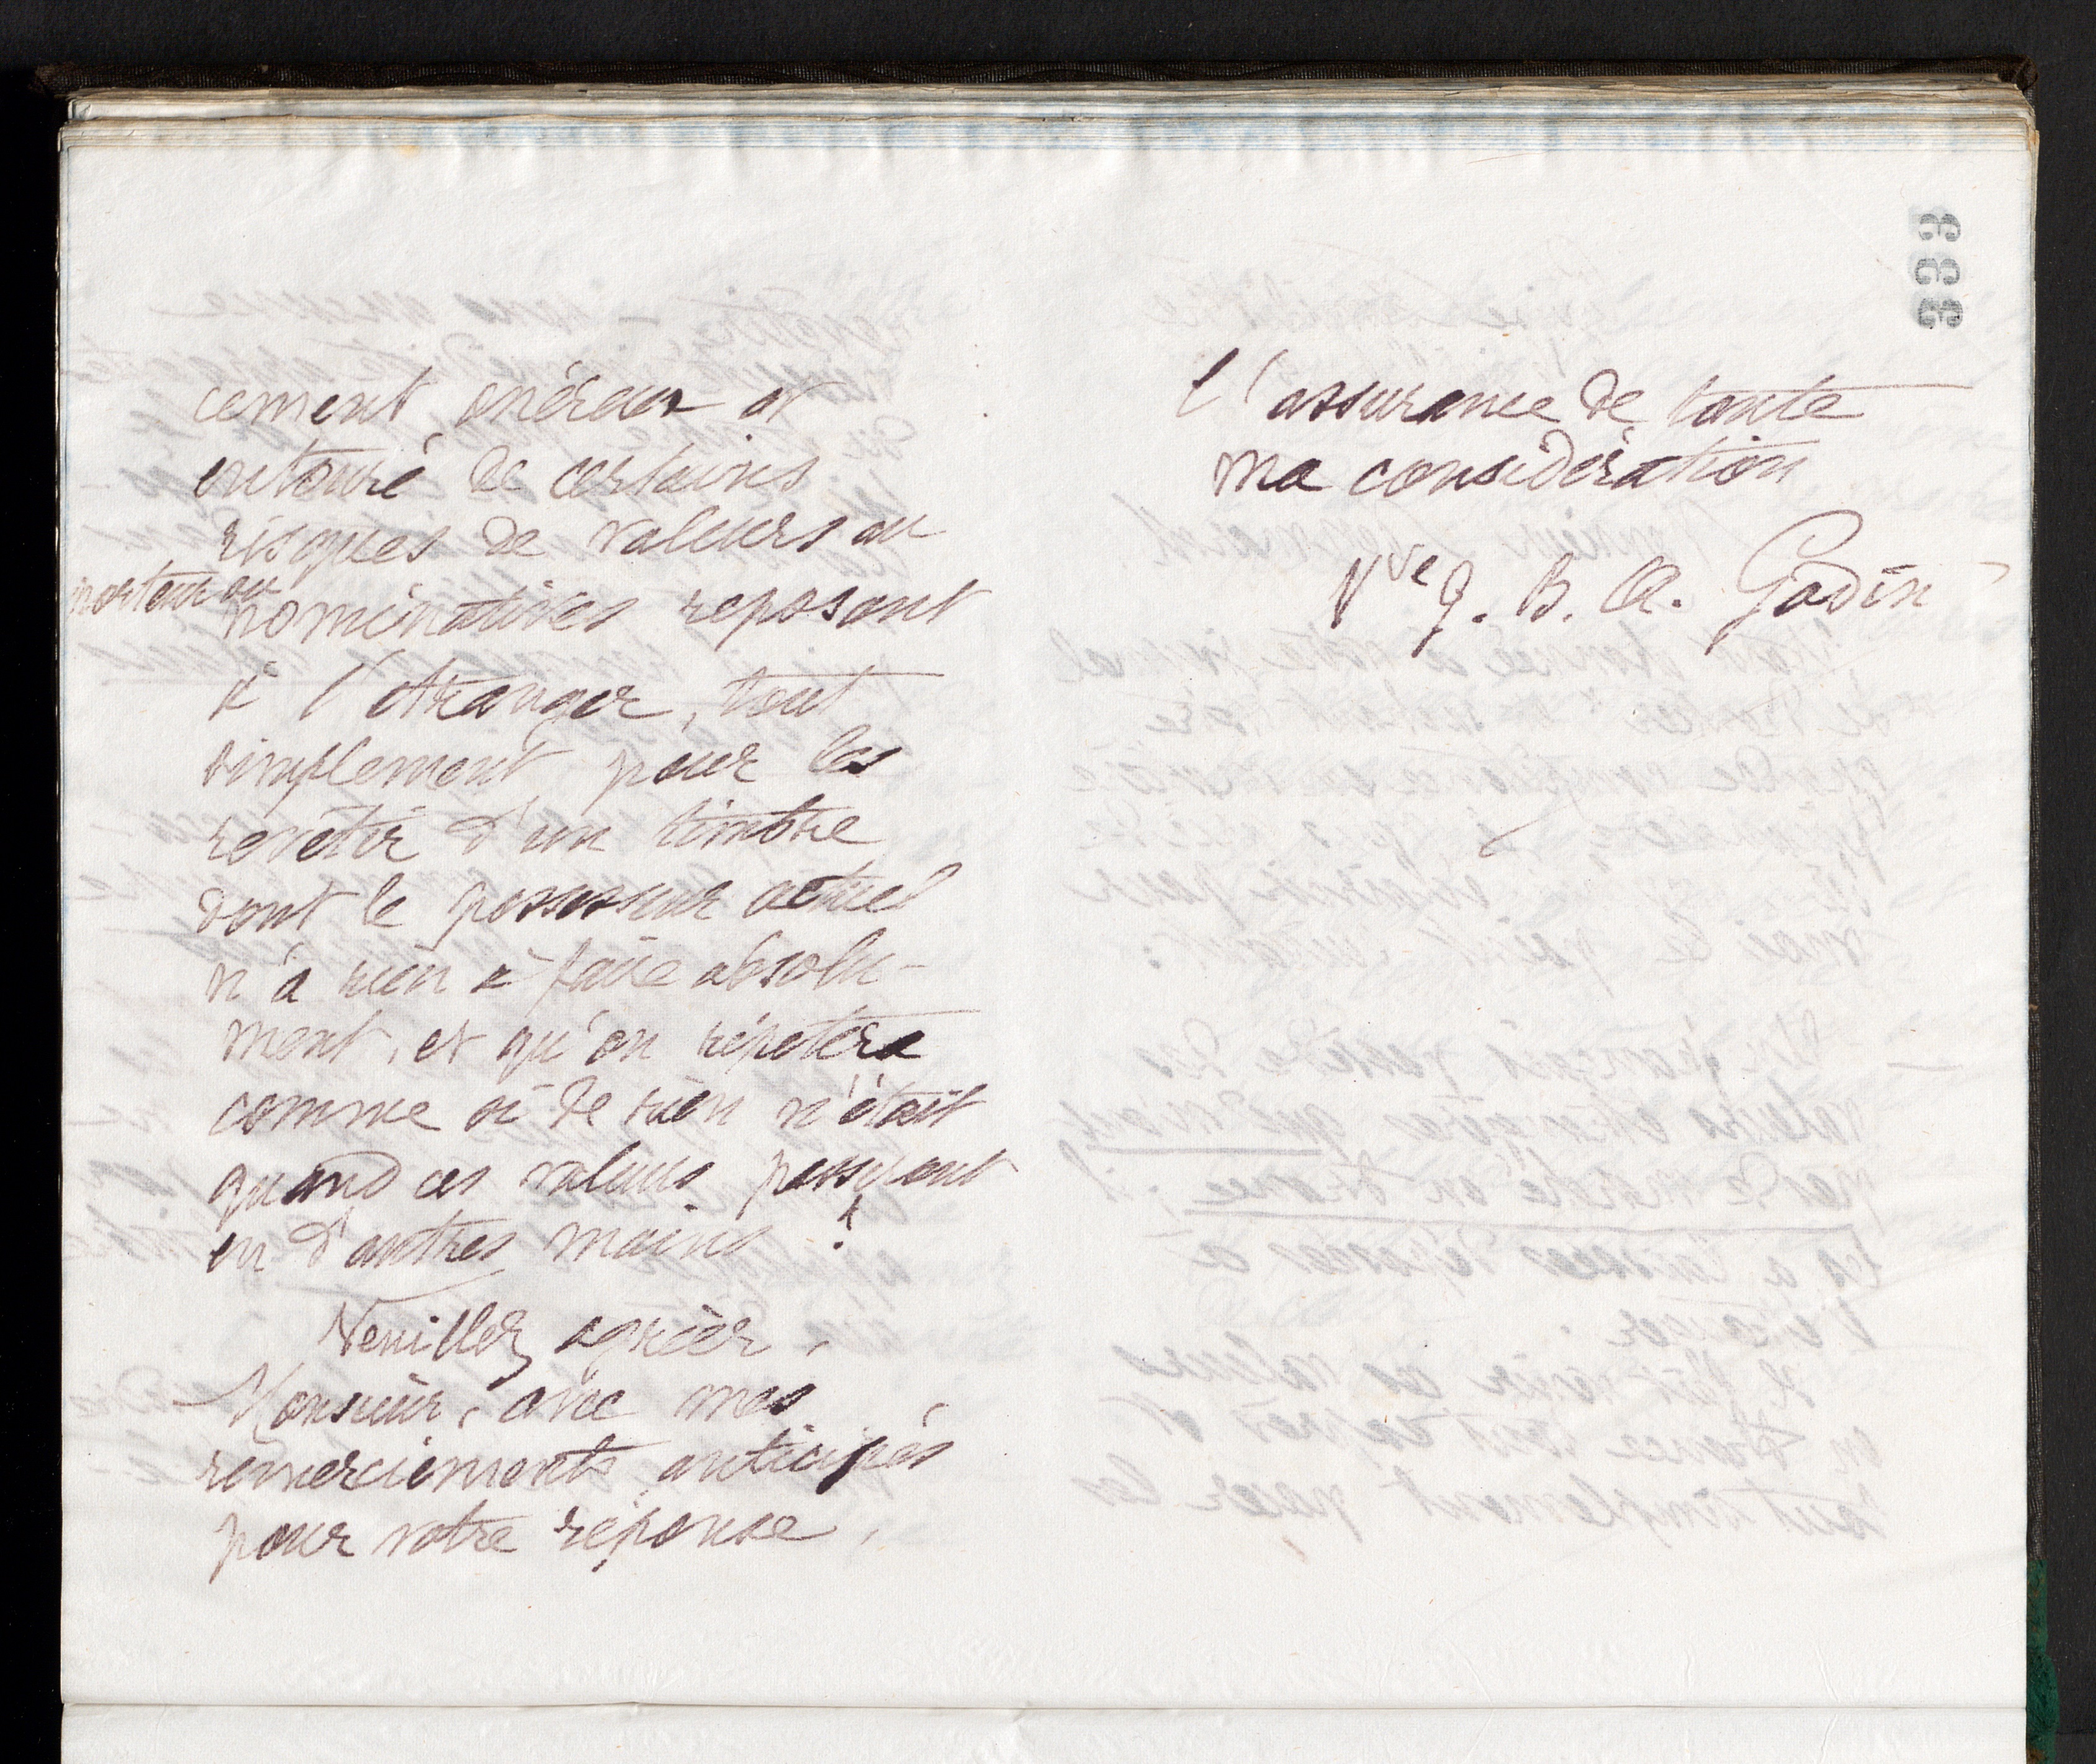 333
cement onéreux et
entouré de certains
risques de valeurs au
porteur ou
nominatives reposant
à l'étranger, tout
simplement pour les
revêtir d'un timbre
dont le possesseur actuel
n'a rien à faire absolu-
ment, et qu'on répètera
comme si de rien n'était
quand ces valeurs passeront
en d'autres mains ?
Veuillez agréer,
Monsieur, avec mes
remerciements anticipés
pour votre réponse,
l'assurance de toute
ma considération
Vve J. B. A. Godin